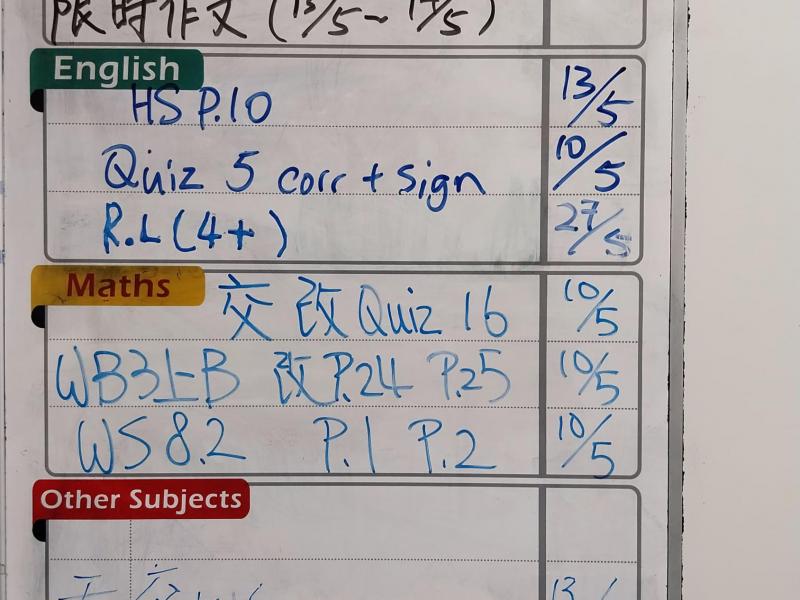 限時作文 (13/5~14/5)
English
HS P.10 13/5
Quiz 5 corr + sign 10/5
R.L (4+) 27/5
Maths
交 改 Quiz 16 10/5
WB3上B 改 P.24 P.25 10/5
WS 8.2 P.1 P.2 10/5
Other Subjects
13/